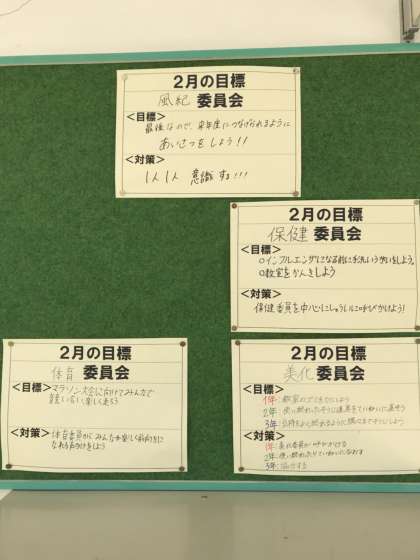 2月の目標
風紀 委員会
<目標>
最後なので、来年度につなげられるように
あいさつをしよう!!
<対策>
1人1人 意識する!!!
2月の目標
保健 委員会
<目標>
○インフルエンザになる前に手洗いうがいをしよう。
○教室をかんきしよう
<対策>
保健委員を中心に
呼びかけよう!
2月の目標
体育 委員会
<目標>
マラソン大会に向けてみんなで
競い合い楽しく走ろう
<対策>
体育委員が、みんなが楽しく前向きに
なれる声かけをしよう
2月の目標
美化 委員会
<目標>
1年:教室の
2年:使い終わったそうじ道具をていねいに直そう
3年:気持ちよく終われるように
<対策>
1年:美化委員が呼びかける
2年:使い終わったらていねいになおす
3年:協力する